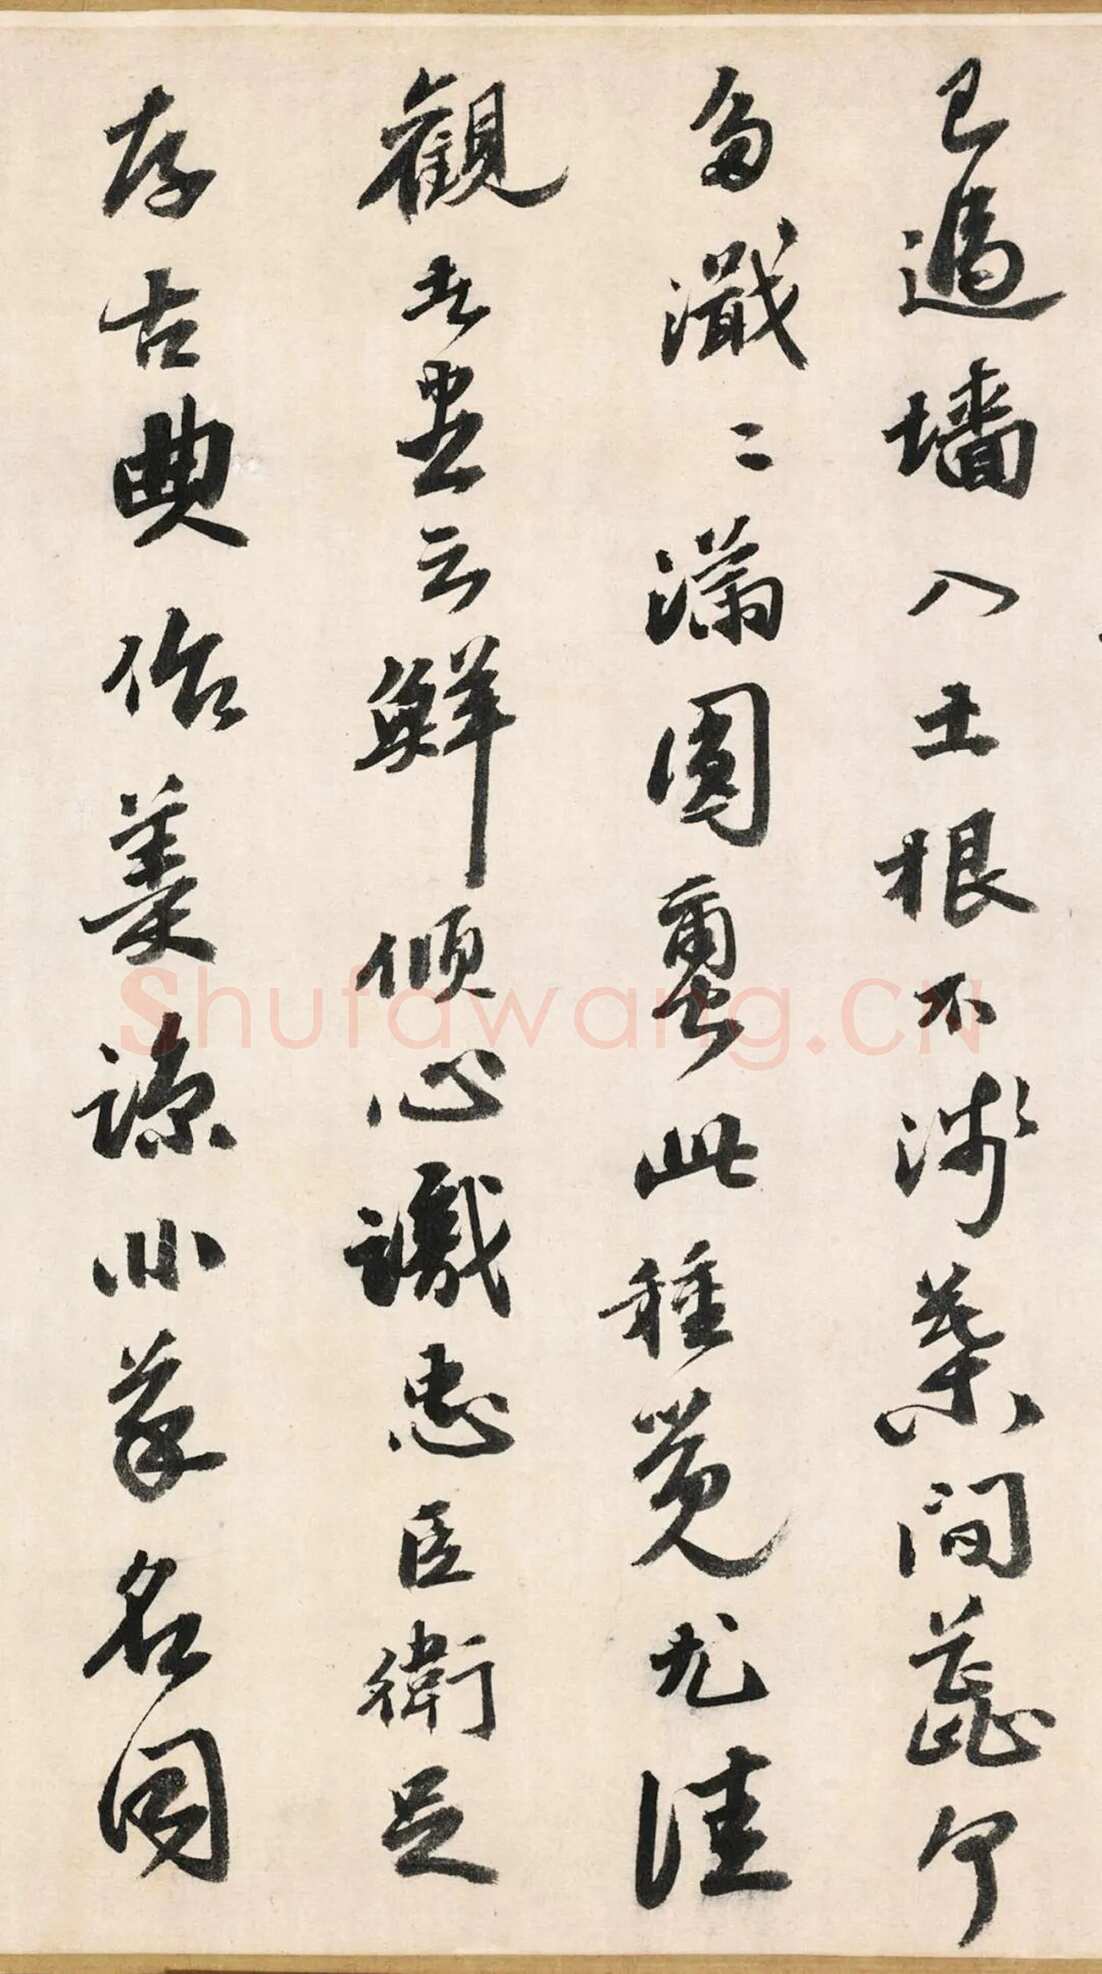 已過墻入土根不淺葉間蕋何
多濈〻滿園爾此種覓尤佳
觀者盡云鮮傾心識忠臣衛足
存古典作羹諒非等名園
Shufawang.CN